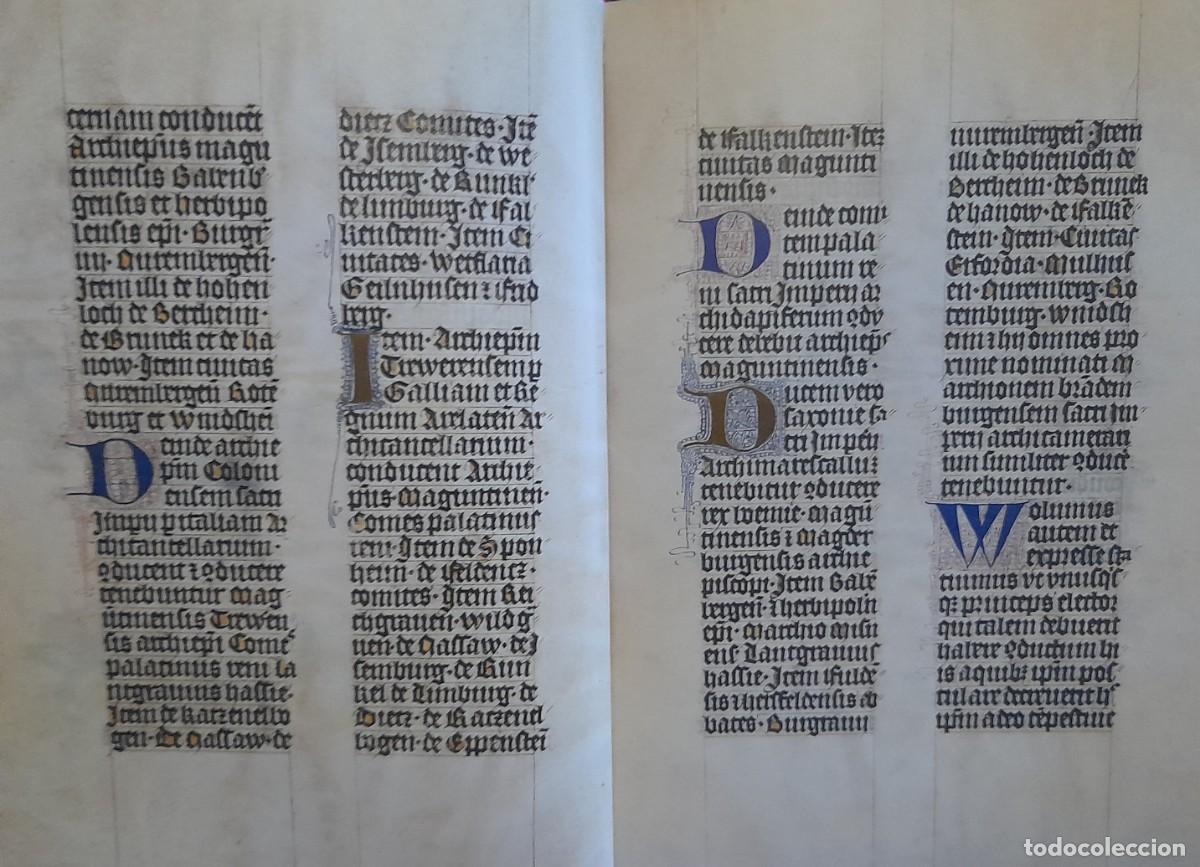 ternam conducēt
Archiepūs magū
tinensis Babenb
gensis et herbipo
lensis epī· Burgr̄
ij· Nurembergeñ·
Item illi de hohen
loch de Bertheim·
de Bruneck et de ha
now· Item ciuitas
Nurembergeñ Roteñ
burg et Windsheī
Deinde archie
pm̄ Coloni
ensem sacri
Impij p italiam Ar
chicancellarium·
9ducent ⁊ 9ducere
tenebuntur Mag
ūtinensis Treweñ
sis archiepī Comeˢ
palatinus reni la
ntgrauius hassie·
Item de Katzenello
gen· de Nassaw· de
dietz Comites· Itē
de Isemberg· de we
sterberg· de Runkl̕
de limburg· de ffal
kenstein· Item Ci
uitates· Wetflaria
Geilnhusen ⁊ ffrid
berg·
Item· Archiepm̄
Treuerensem p
Galliam et Re
gnum Arelateñ Ar
chicancellarium·
conducent Archie
pūs· Maguntineñ·
Comes palatinus
reni· Item de Spon
heim· de ffeldencz·
comites· Item Rei
chgrauen· wildg̕
uen· de Nassaw· de I
semburg· de Run
kel de Limburg· de
Dietz· de Katzenel
bogen· de Eppensteī
de ffalkenstein· Item
ciuitas Magunti
nensis·
Deinde comi
tem pala
tinum re
ni sacri Imperij ar
chidapiferum 9du
cere debebit archiepˢ
Maguntinensis·
Ducem vero
saxonie sa
cri Imperij
Archimarescallum
tenebitur 9ducere
rex boemie· Magū
tinensis ⁊ Magder
burgensis archie
piscopi· Item Babē
bergeñ· ⁊ herbipoleñ
epī· Marchio Misn̄
ens̄ Lantgrauius
hassie· Item ffulde
sis ⁊ hersfeldensis ab
bates· Burgrauij
nurembergeñ· Item
illi de hohenloch de
Bertheim· de Bruneck
de hanow· de ffalkē
stein· Item· Ciuitas
Erfordia· Mulhus
en· Nuremberg· Ro
temburg· windsh
eim ⁊ hij omnes pro
xime nominati m
archionem brādem
burgensem sacri Im
perij archicamerari
um similiter 9duce
tenebuntur·
Wolumus
autem et
expresse sta
tuimus vt vnusqˢ
qꝫ princeps elector
qui talem debuerit
habere 9ductum hi
is a quibꝫ ip̄m pos
culare decreuerit h̄
ip̄m adeo tēpestiue
todocoleccion